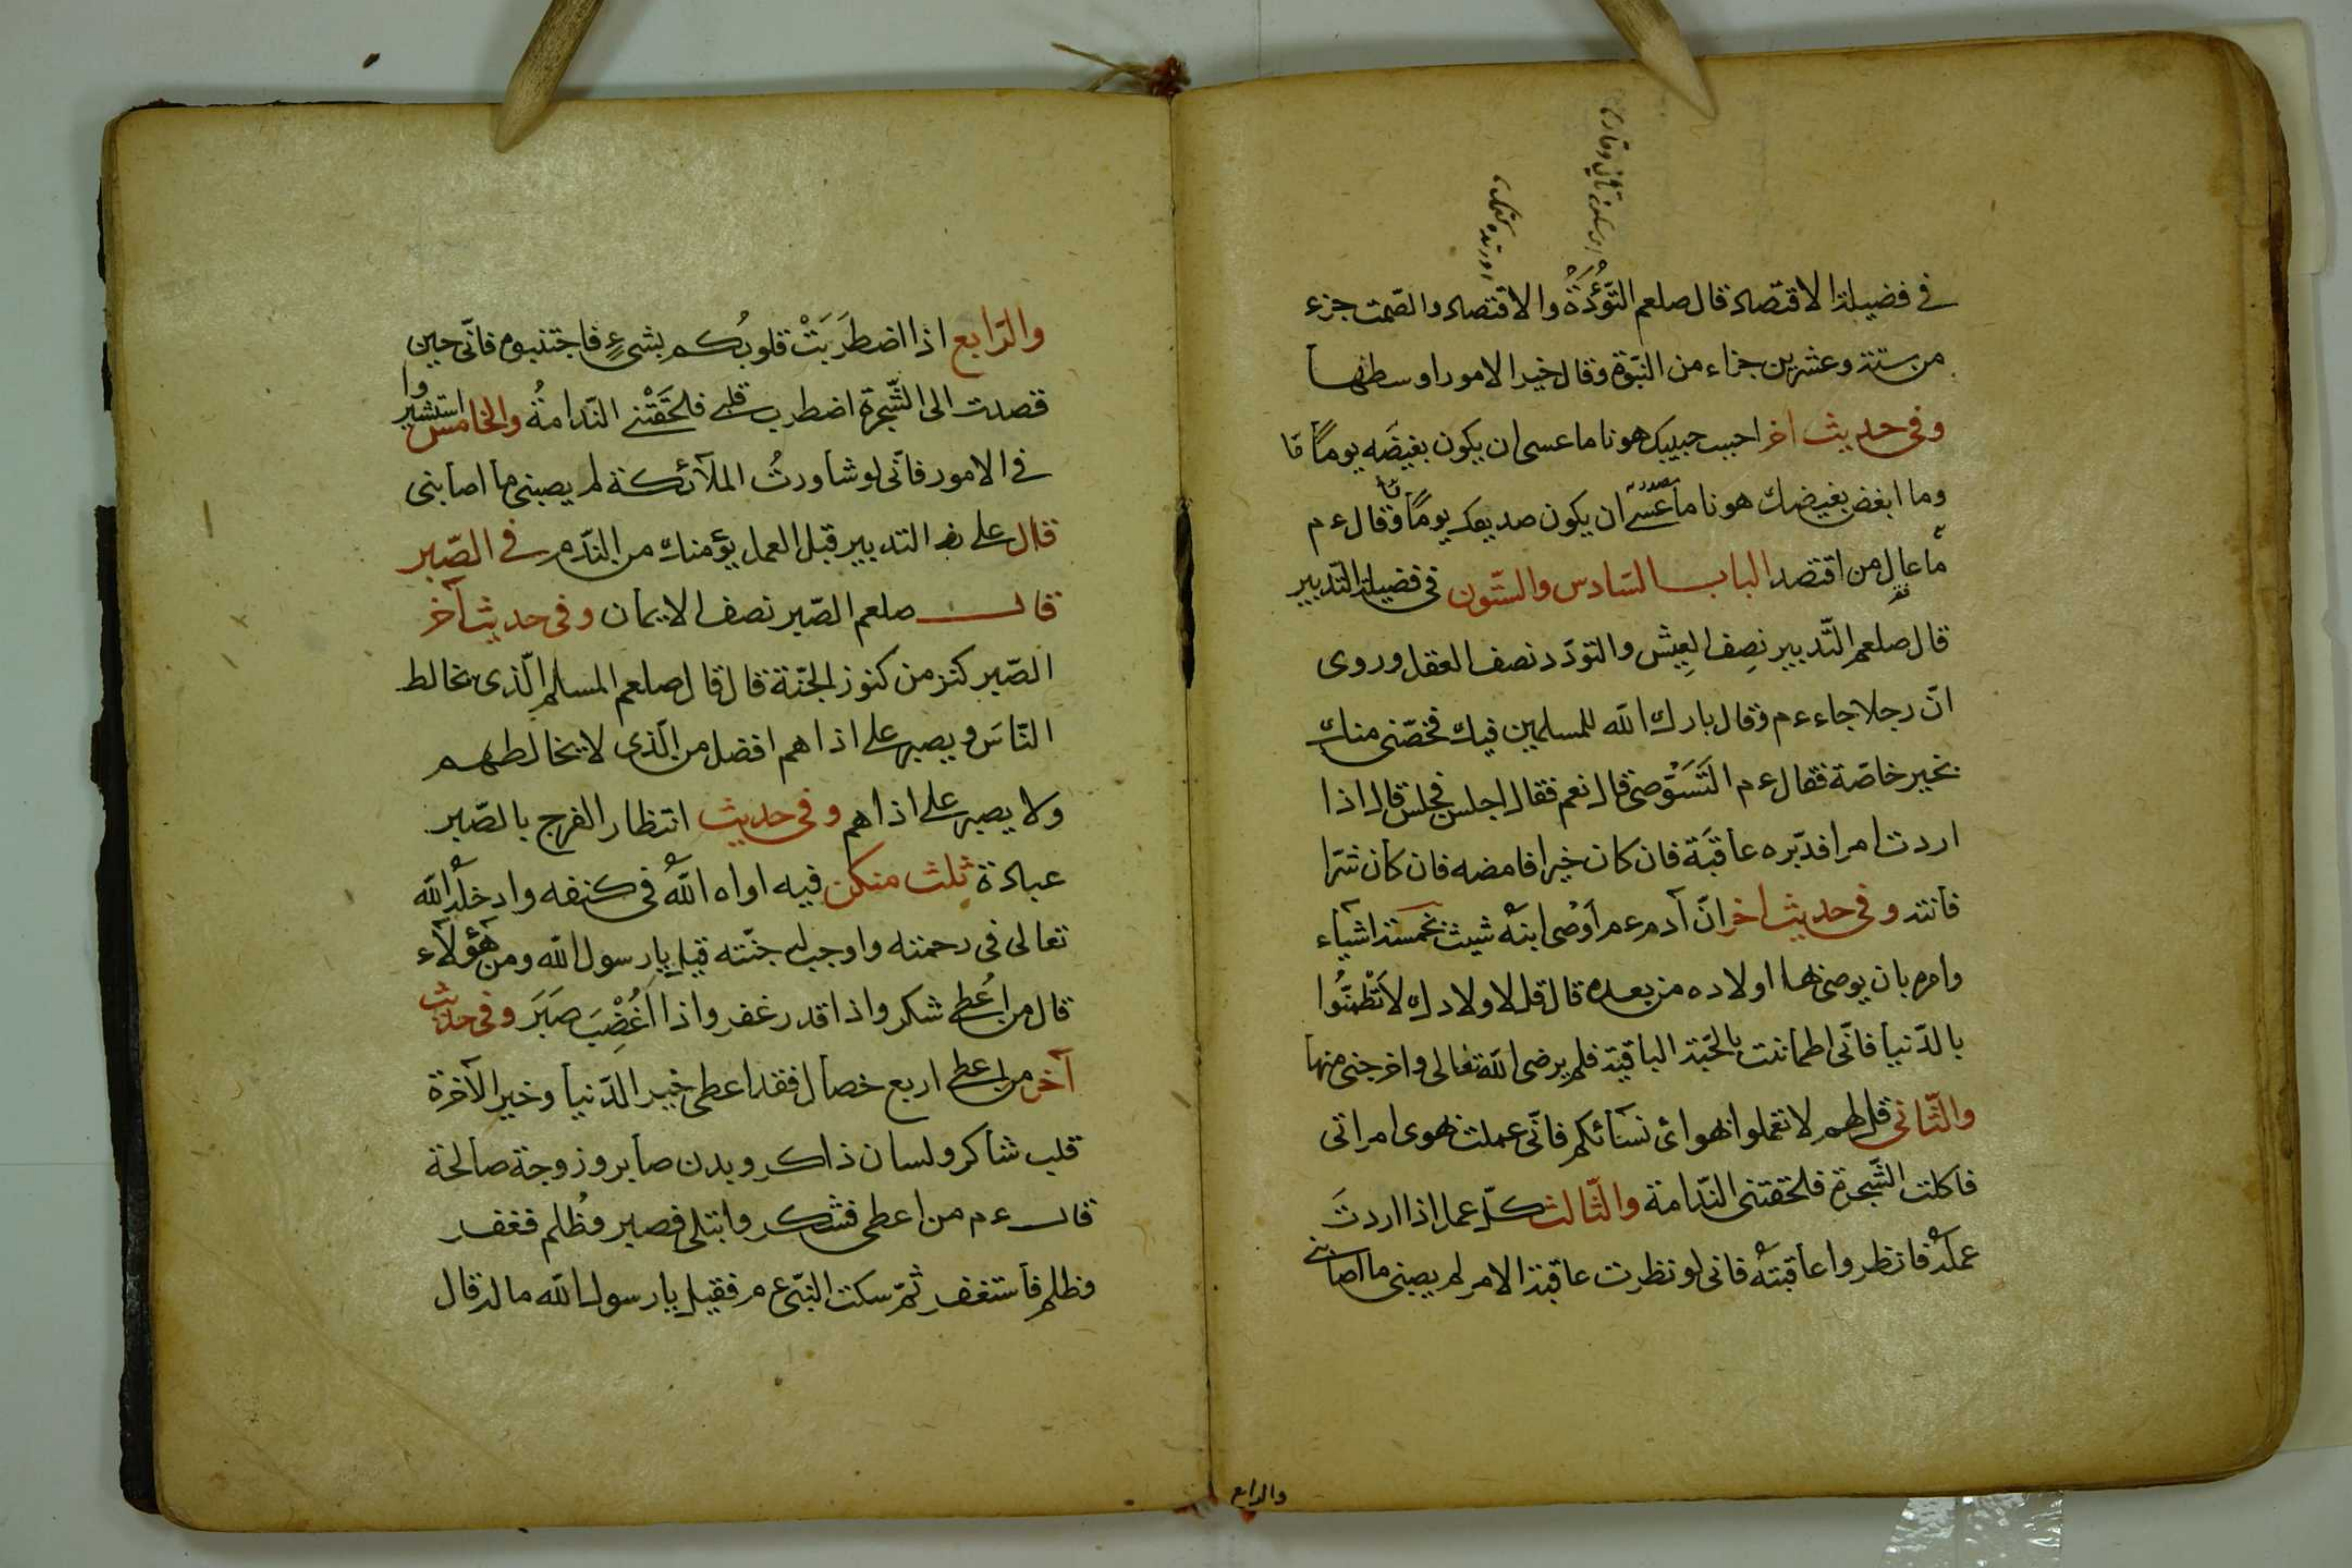 في فضيلة الاقتصاد قال صلعم التُّؤَدَةُ والاقتصاد والصّمت جزء
من ستة وعشرين جزاء من النبّوة وقال خير الامور اوسطها
وفى حديث اخر احبب حبيبك هونا ما عسى ان يكون بغيضه يوماً ما
وما ابغض بغيضك هونا ما عسى ان يكون صديقك يوماً ما وقال ءم
ما عال من اقتصد الباب السّادس والستّون فى فضيلة التّدبير
قال صلعم التّدبير نصِف العِيش والتودّد نصف العقل وروى
انّ رجلا جاء ءم وقال بارك الله للمسلمين فيك فخصّنى منك
بخير خاصّة فقال ءم اَتَسْتَوْصى قال نعم فقال اجلس فجلس قال اذا
اردت امرا فدبّره عاقبَة فان كان خيرا فامضه فان كان شرّا
فانته وفى حديث اخر انّ آدم ءم اَوْصى ابنهُ شيث بخمسة اشياء
وامره بان يوصى بها اولاده من بعده قال قل لاولادك لاَ تَطْمَئِنُّوا
بالدّنيا فانّى اطماننت بالجنّة الباقية فلم يرضى الله تعالى واخرجنى منها
والثّانى قل لهم لا تعملوا بهوائ نسآئكم فانّى عملت بهوى امراتى
فاكلت الشّجرة فلحقتنى النّدامة والثّالث كلّ عمل اذا اردتَ
عملهُ فانظروا عاقبتهُ فانى لو نظرت عاقبة الامر لم يصبنى ما اصابنى
والرابع
والرّابع اذا اضطرَبَتْ قلوبُكم بشىءٍ فاجتنبوه فانّى حين
قصدت الى الشّجرة اضطرب قلبى فلحَقَتْنى النّدامةُ والخامس استشيروا
فى الامور فانّى لو شاورتُ الملآئكة لم يصبنى ما اصابنى
قال على رض التدبير قبل العمل يؤمنك من النّدم فى الصّبر
قال صلعم الصّبر نصف الايمان وفى حديث آخر
الصّبر كنز من كنوز الجنّة قال قال صلعم المسلم الّذى يخالط
النّاسَ ويصبر على اذاهم افضل من الّذى لا يخالطهم
ولا يصبر على اذاهم وفى حديث انتظار الفرج بالصّبر
عبادة ثلث من كن فيه اواه اللهُ فى كنفه وادخلهُ الله
تعالى فى رحمته واوجب له جنّته قيل يا رسول الله ومن هؤلآء
قال من اُعطى شكر واذا قدر غفر واذا اُغْضِبَ صَبَرَ وفى حديث
آخر من اعطى اربع خصال فقد اعطى خير الدّنيا وخير الآخرة
قلب شاكر ولسان ذاكر وبدن صابر وزوجة صالحة
قال ءم من اعطى فشكر وابتلى فصبر وظُلم فغفر
وظلم فاستغفر ثمّ سكت النّبى ءم فقيل يا رسول الله ما له قال